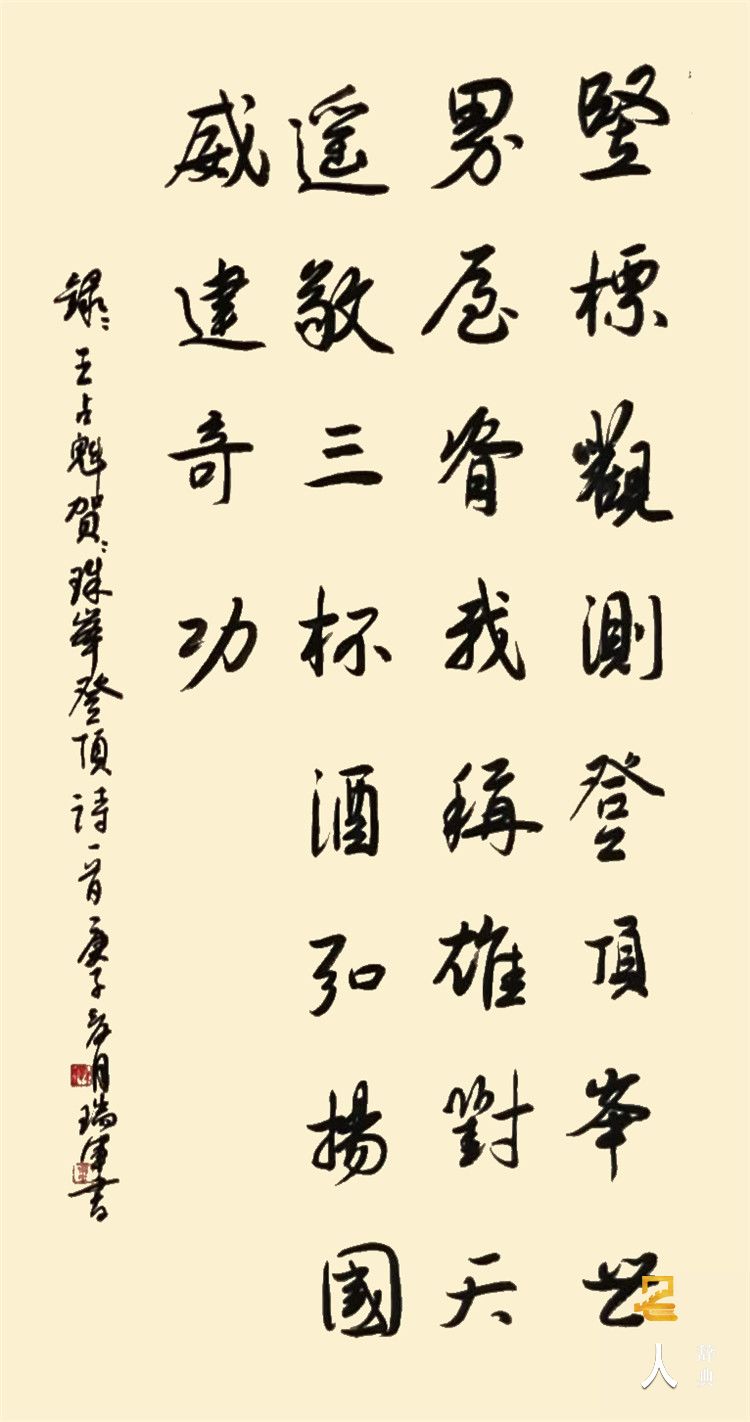 竖標觀測登頂峯世
界屋脊我稱雄對天
遥敬三杯酒弘揚國
威建奇功
録:王占魁賀:珠峯登頂詩一首庚子年月瑞軍書
人
辞典